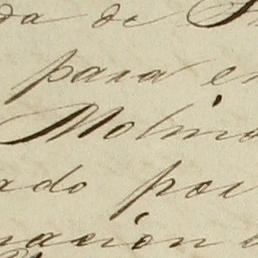 da de
para en
Molino
ado por
nacion